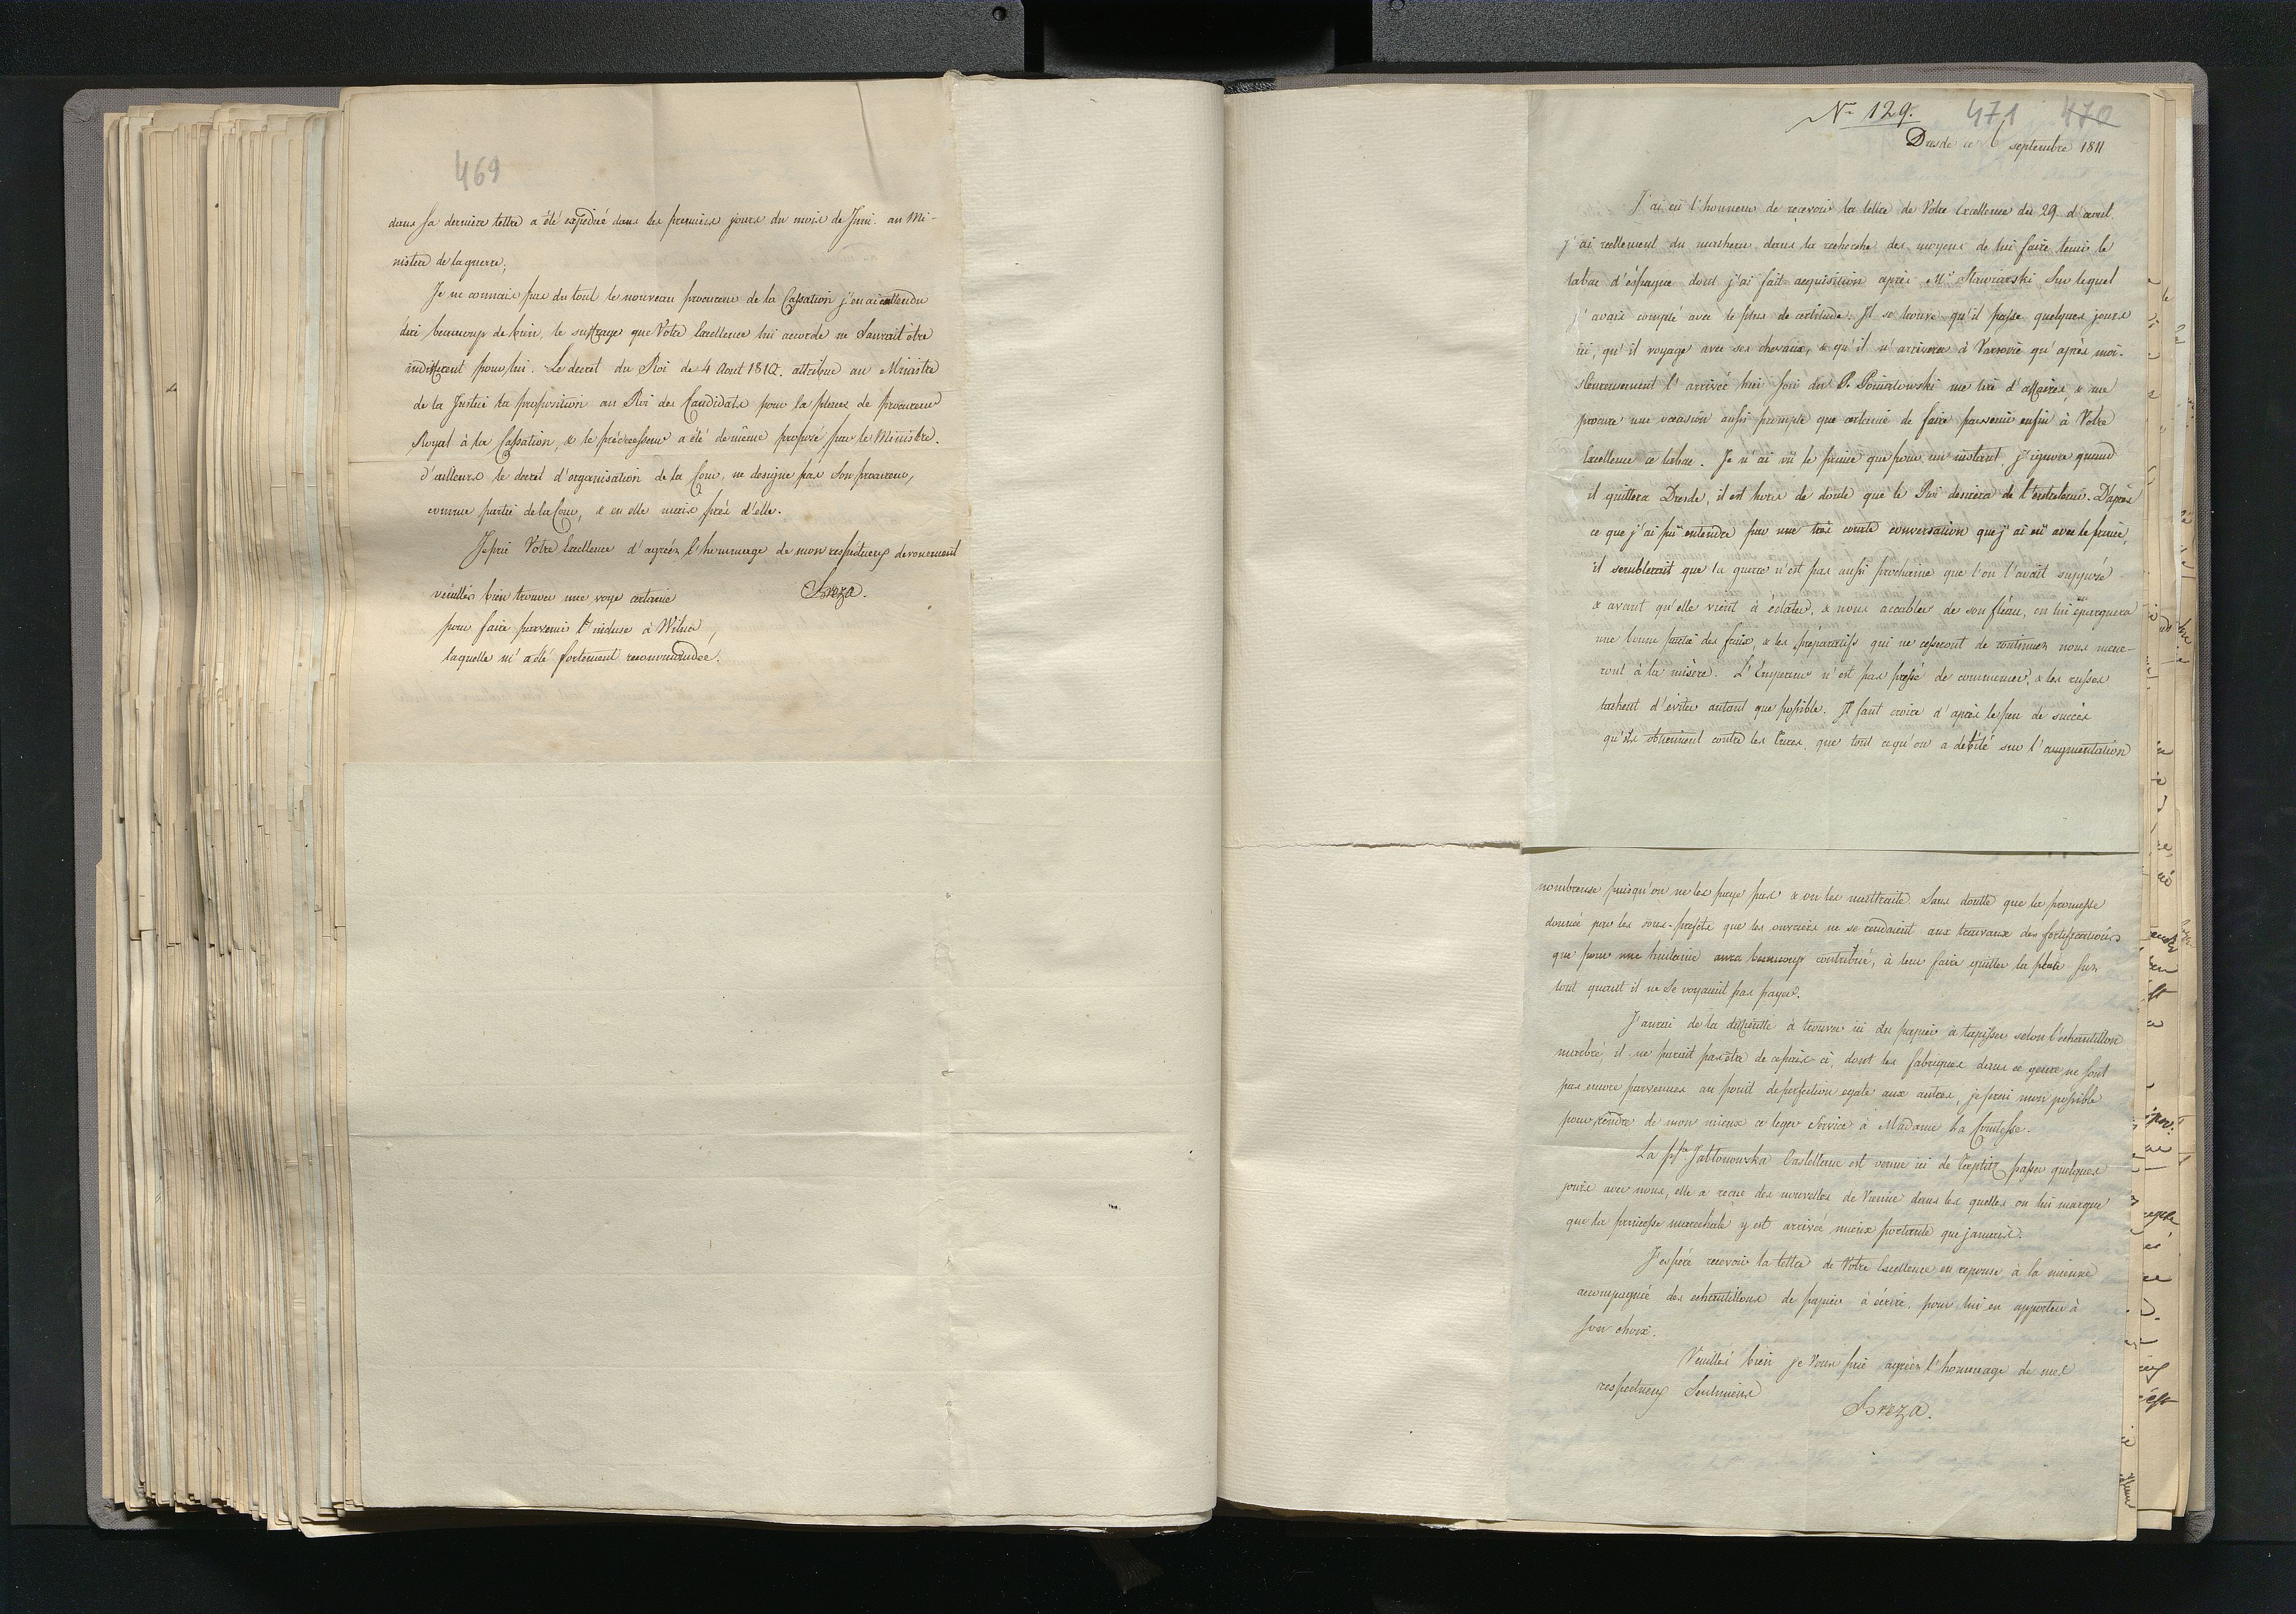 469
dans sa derniere lettre a été expediée dans les premiers jours du mois de Juni. au Mi-
nistere de la guerre;
Je ne connais pas du tout le nouveau procureur de la Cassation j'en ai entendu
dire beaucoup de bien, le suffrage que Votre Excellence lui accorde ne Saurait être
indifferent pour lui. Le decret du Roi de 4 Aout 1810. attribue au Ministre
de la Justice la proposition au Roi des Candidats pour la place de procureur
Royal à la Cassation, & le prédecesseur a été de même proposé par le Ministre.
d'ailleurs le decret d'organisation de la Cour, ne designe pas son procureur,
comme partie de la Cour, & en elle mais près d'elle.
Je prie Votre Excellence d'agréer l'hommage de mon respectueux devouement
Breza.
veuilles bien trouver une voye certaine
pour faire parvenir l'incluse à Wilna,
laquelle m'a été fortement recommandée.
N° 129. 471 470
Dresde ce 6 septembre 1811
J'ai eu l'honneur de recevoir la lettre de Votre Excellence du 29 d'aout.
j'ai reellement du malheur dans la recherche des moyens de lui faire tenir le
tabac d'éspagne dont j'ai fait acquisition après Mr Slawiarski sur lequel
j'avais compté avec le plus de certitude. Il se trouve qu'il passe quelques jours
ici, qu'il voyage avec ses chevaux, & qu'il n'arrivera à Varsovie qu'après moi.
Heureusement l'arrivée hier soir du P. Poniatowski me tire d'affaires, & me
procure une occasion aussi prompte que certaine de faire parvenir enfin à Votre
Excellence ce tabac. Je n'ai vû le prince que pour un instant j'ignore quand
il quittera Dresde, il est hors de doute que le Roi desirera de l'entretenir. D'après
ce que j'ai pû entendre par une très courte conversation que j'ai eû avec le prince,
il semblerait que la guerre n'est pas aussi prochaine que l'on l'avait supposé
& avant qu'elle vient à éclater, & nous accabler de son fleau, on lui épargnera
une bonne partie des frais, & les préparatifs qui ne cesseront de continuer nous mene-
ront à la misère. L'Empereur n'est pas pressé de commencer, & les russes
tachent d'éviter autant que possible. Il faut croire d'après le peu de succès
qu'ils obtiennent contre les Turcs, que tout ce qu'on a debité sur l'augmentation
nombreuse puisqu'on ne les paye pas & on les maltraite. Sans doutte que la promesse
donnée par les sous-prefets que les ouvriers ne se rendaient aux travaux des fortifications
que pour une huitaine aura beaucoup contribué, à leur faire quitter la place sur
tout quant il ne se voyaient pas payer.
J'aurai de la difficulté à trouver ici du papier à tapisser selon l'échantillon
marbré, il ne parait pas être de ce pais-ci, dont les fabriques dans ce genre ne sont
pas encore parvenues au point de perfection egale aux autres, je ferai mon possible
pour rendre de mon mieux ce leger Service à Madame la Comtesse.
La psse Jabłonowska Castellane est venue ici de Toeplitz passer quelques
jours avec nous, elle a recue des nouvelles de Vienne dans les quelles on lui marque
que la princesse marechale y est arrivée mieux portante que jamais.
J'espére recevoir la lettre de Votre Excellence en reponse à la mienne
accompagnée des echantillons de papier à écrire, pour lui en apporter à
son choix.
Veuilles bien je Vous prie agréer l'hommage de mes
respectueux Sentimens
Breza.